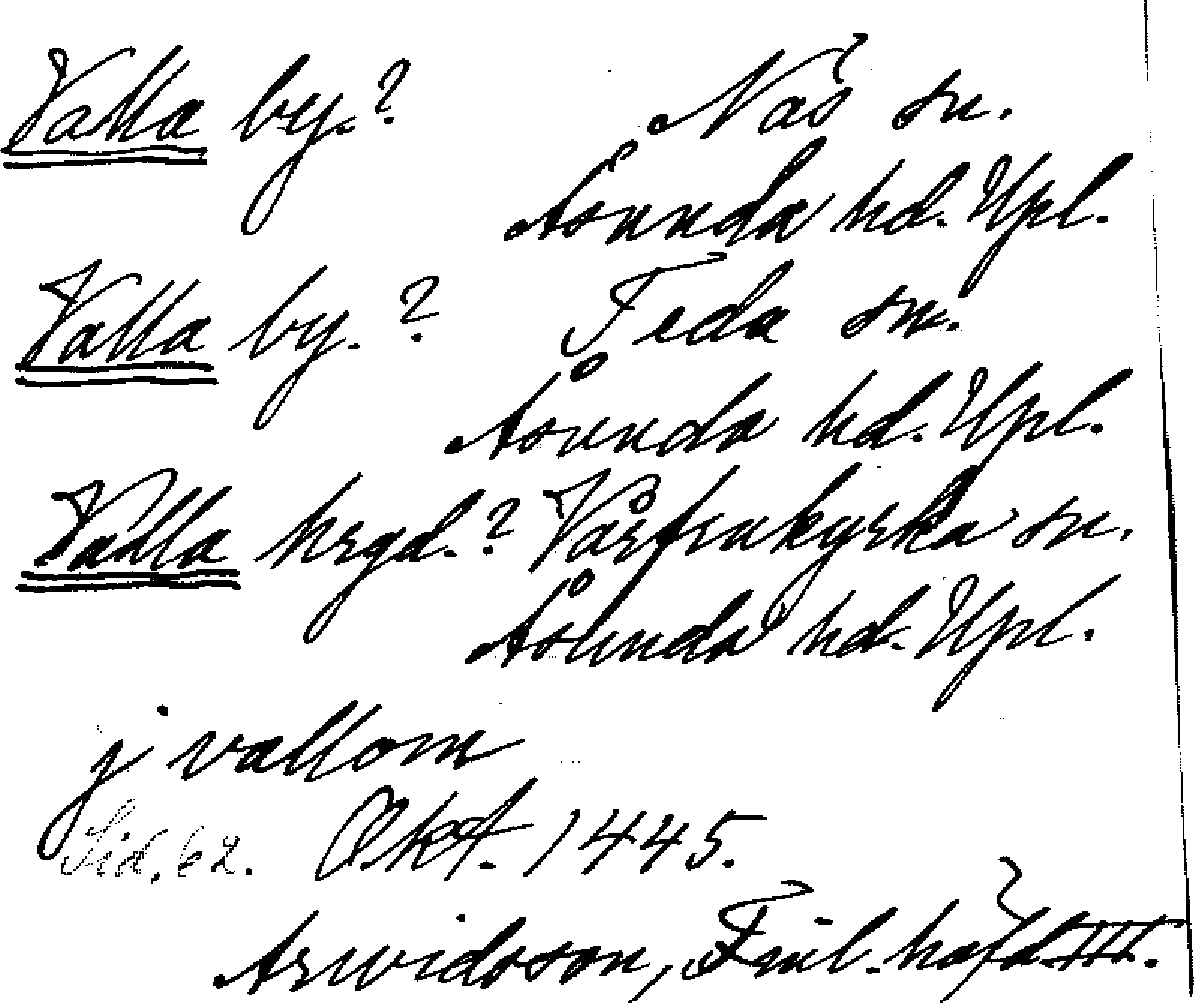 Valla by.? Näs sn.
Åsunda hd. Upl.
Valla by. ? Teda sn.
Åsunda hd. Upl.
Valla hrgd.? Vårfrukyrka sn.
Åsunda hd. Upl.
j vallom
Sid. 62. Okt. 1445.
Arwidsson, Finl. häfd. III.